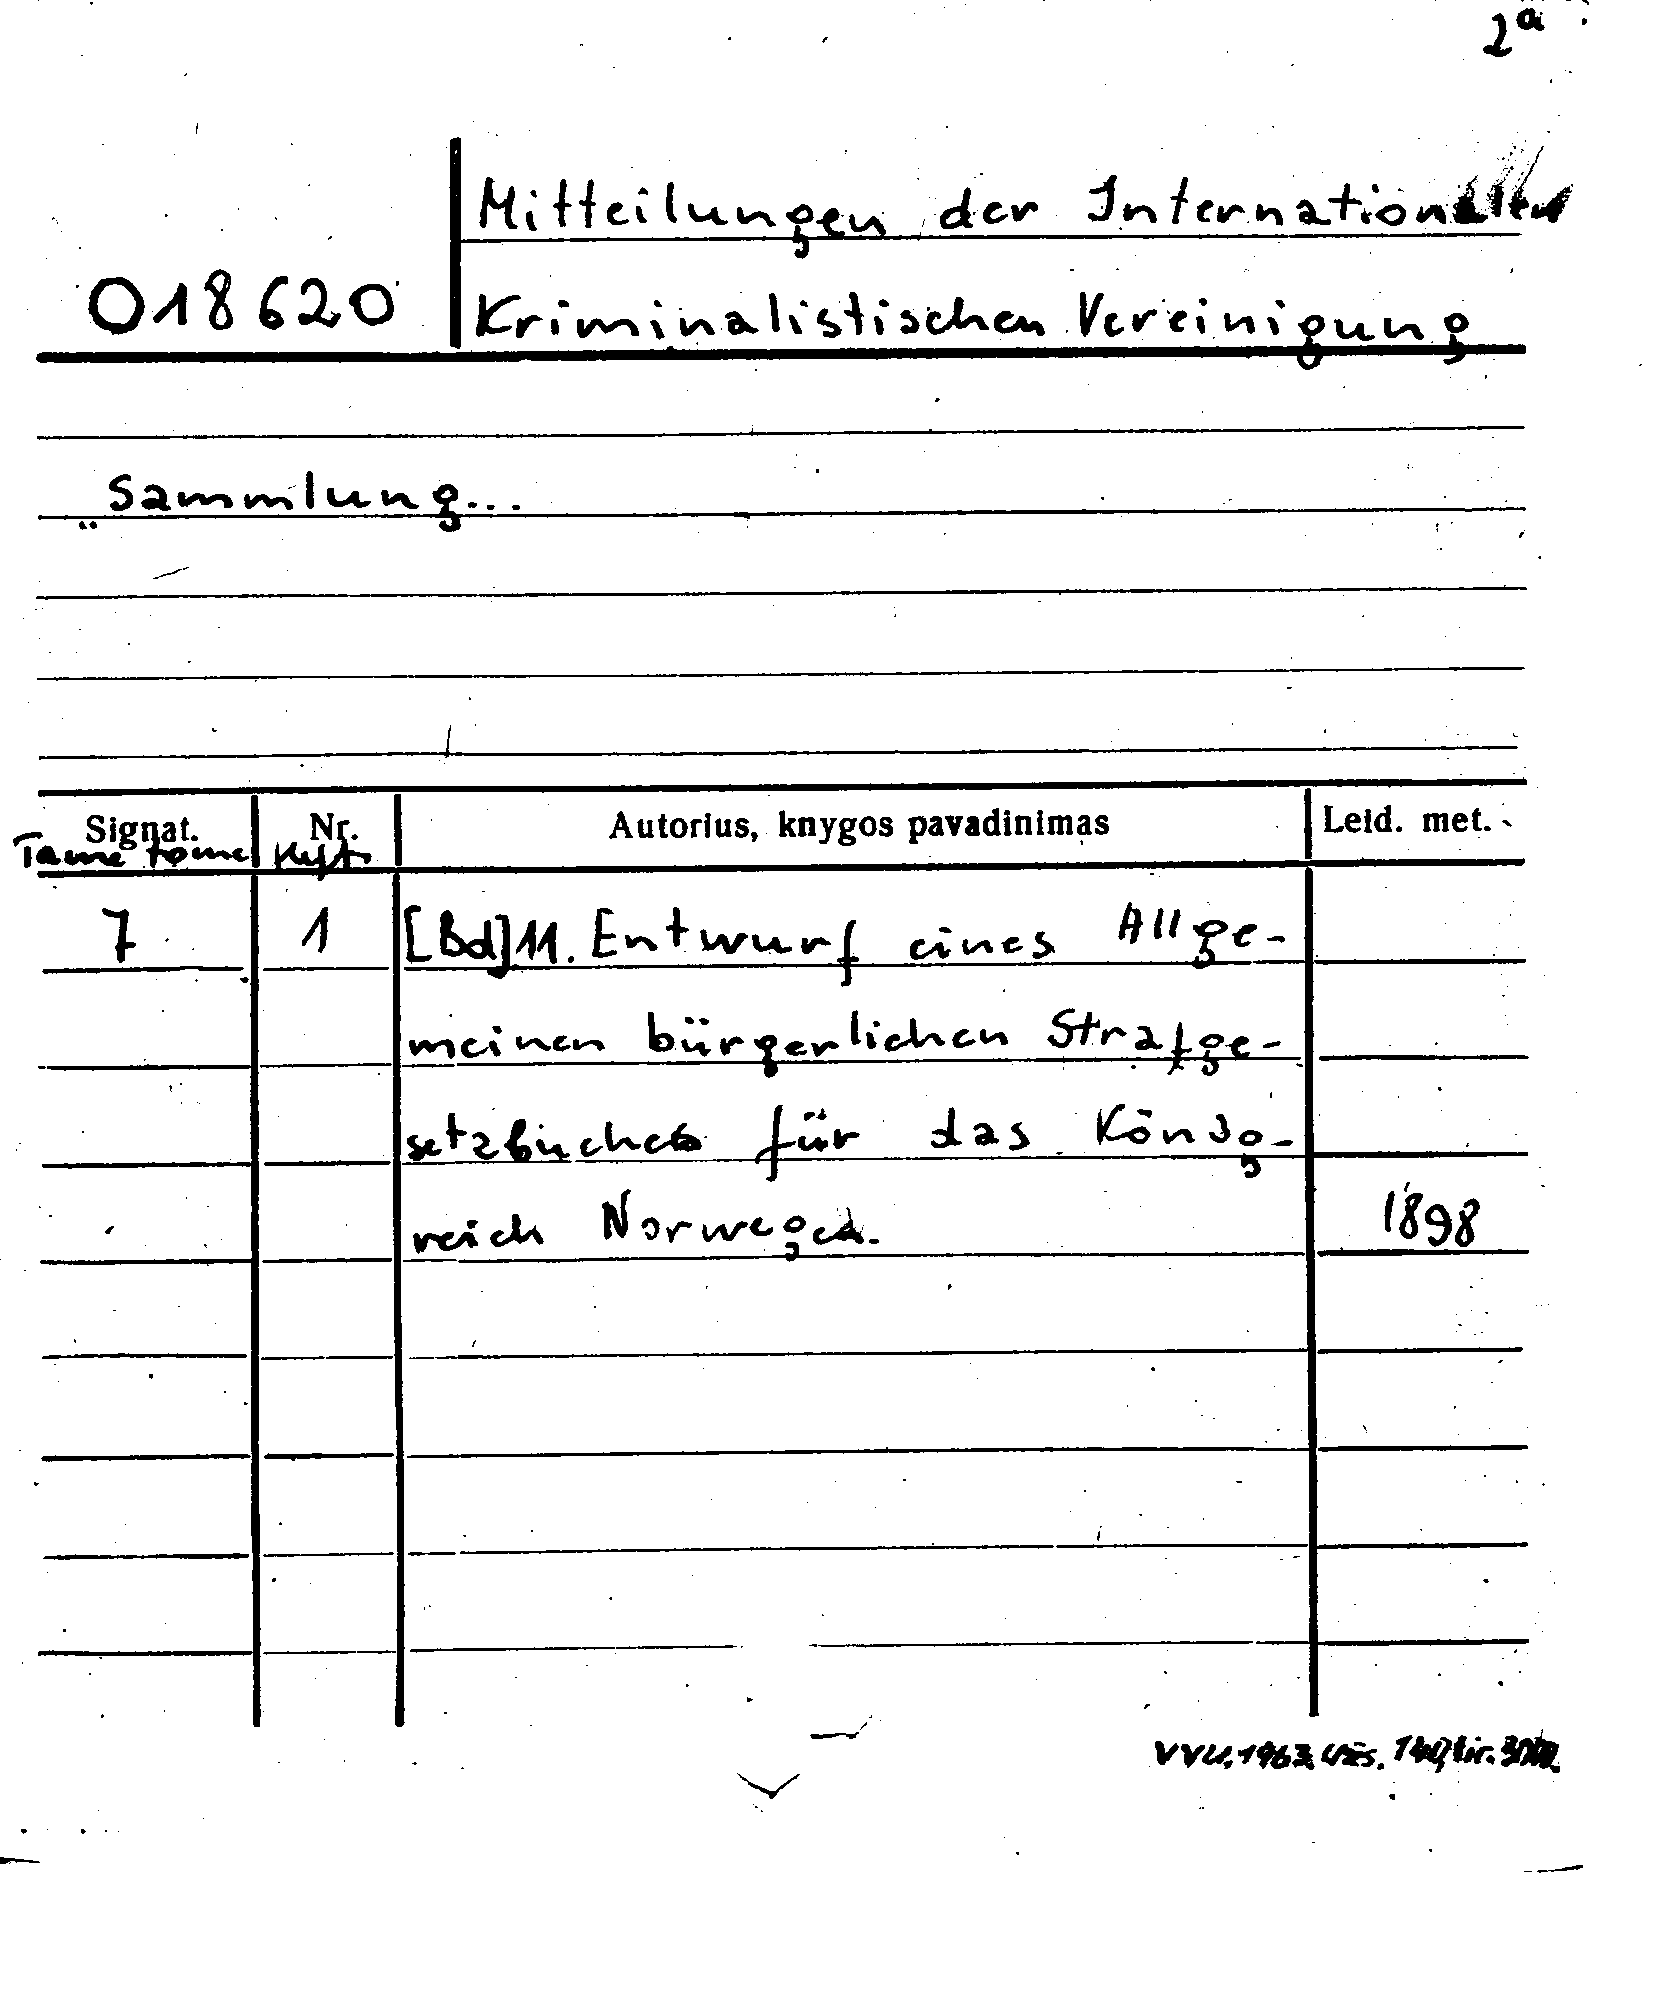 2a
Mitteilungen der Internationalen
018620
Kriminalistischen Vereinigung
„Sammlung...
Signat. Nr. Autorius, knygos pavadinimas Leid. met.
Tame tome
7 1 [Bd]11. Entwurf eines Allge-
meinen bürgerlichen Strafge-
setzbuches für das König-
reich Norwegen. 1898
VVU. 1963